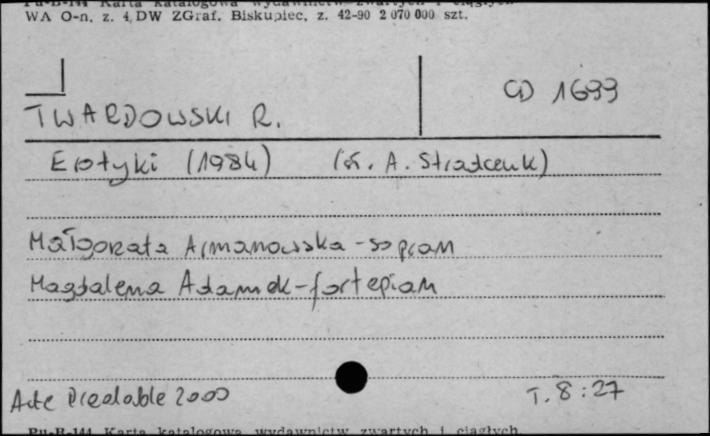 Pu-B-144 Karta katalogowa wydawnictw zwartych i ciągłych
WA O-n, z. 4, DW ZGraf. Biskupiec, z. 42-90 2 070 000 szt.
CD 1633
TWARDOWSKI R.
Erotyki (1984) (sł. A. Stradcenk)
Małgorzata Armanowska - sopran
Magdalena Adamek - fortepian
Acte Préalable 2000
T. 8:27
Pu-B-144 Karta katalogowa wydawnictw zwartych i ciągłych